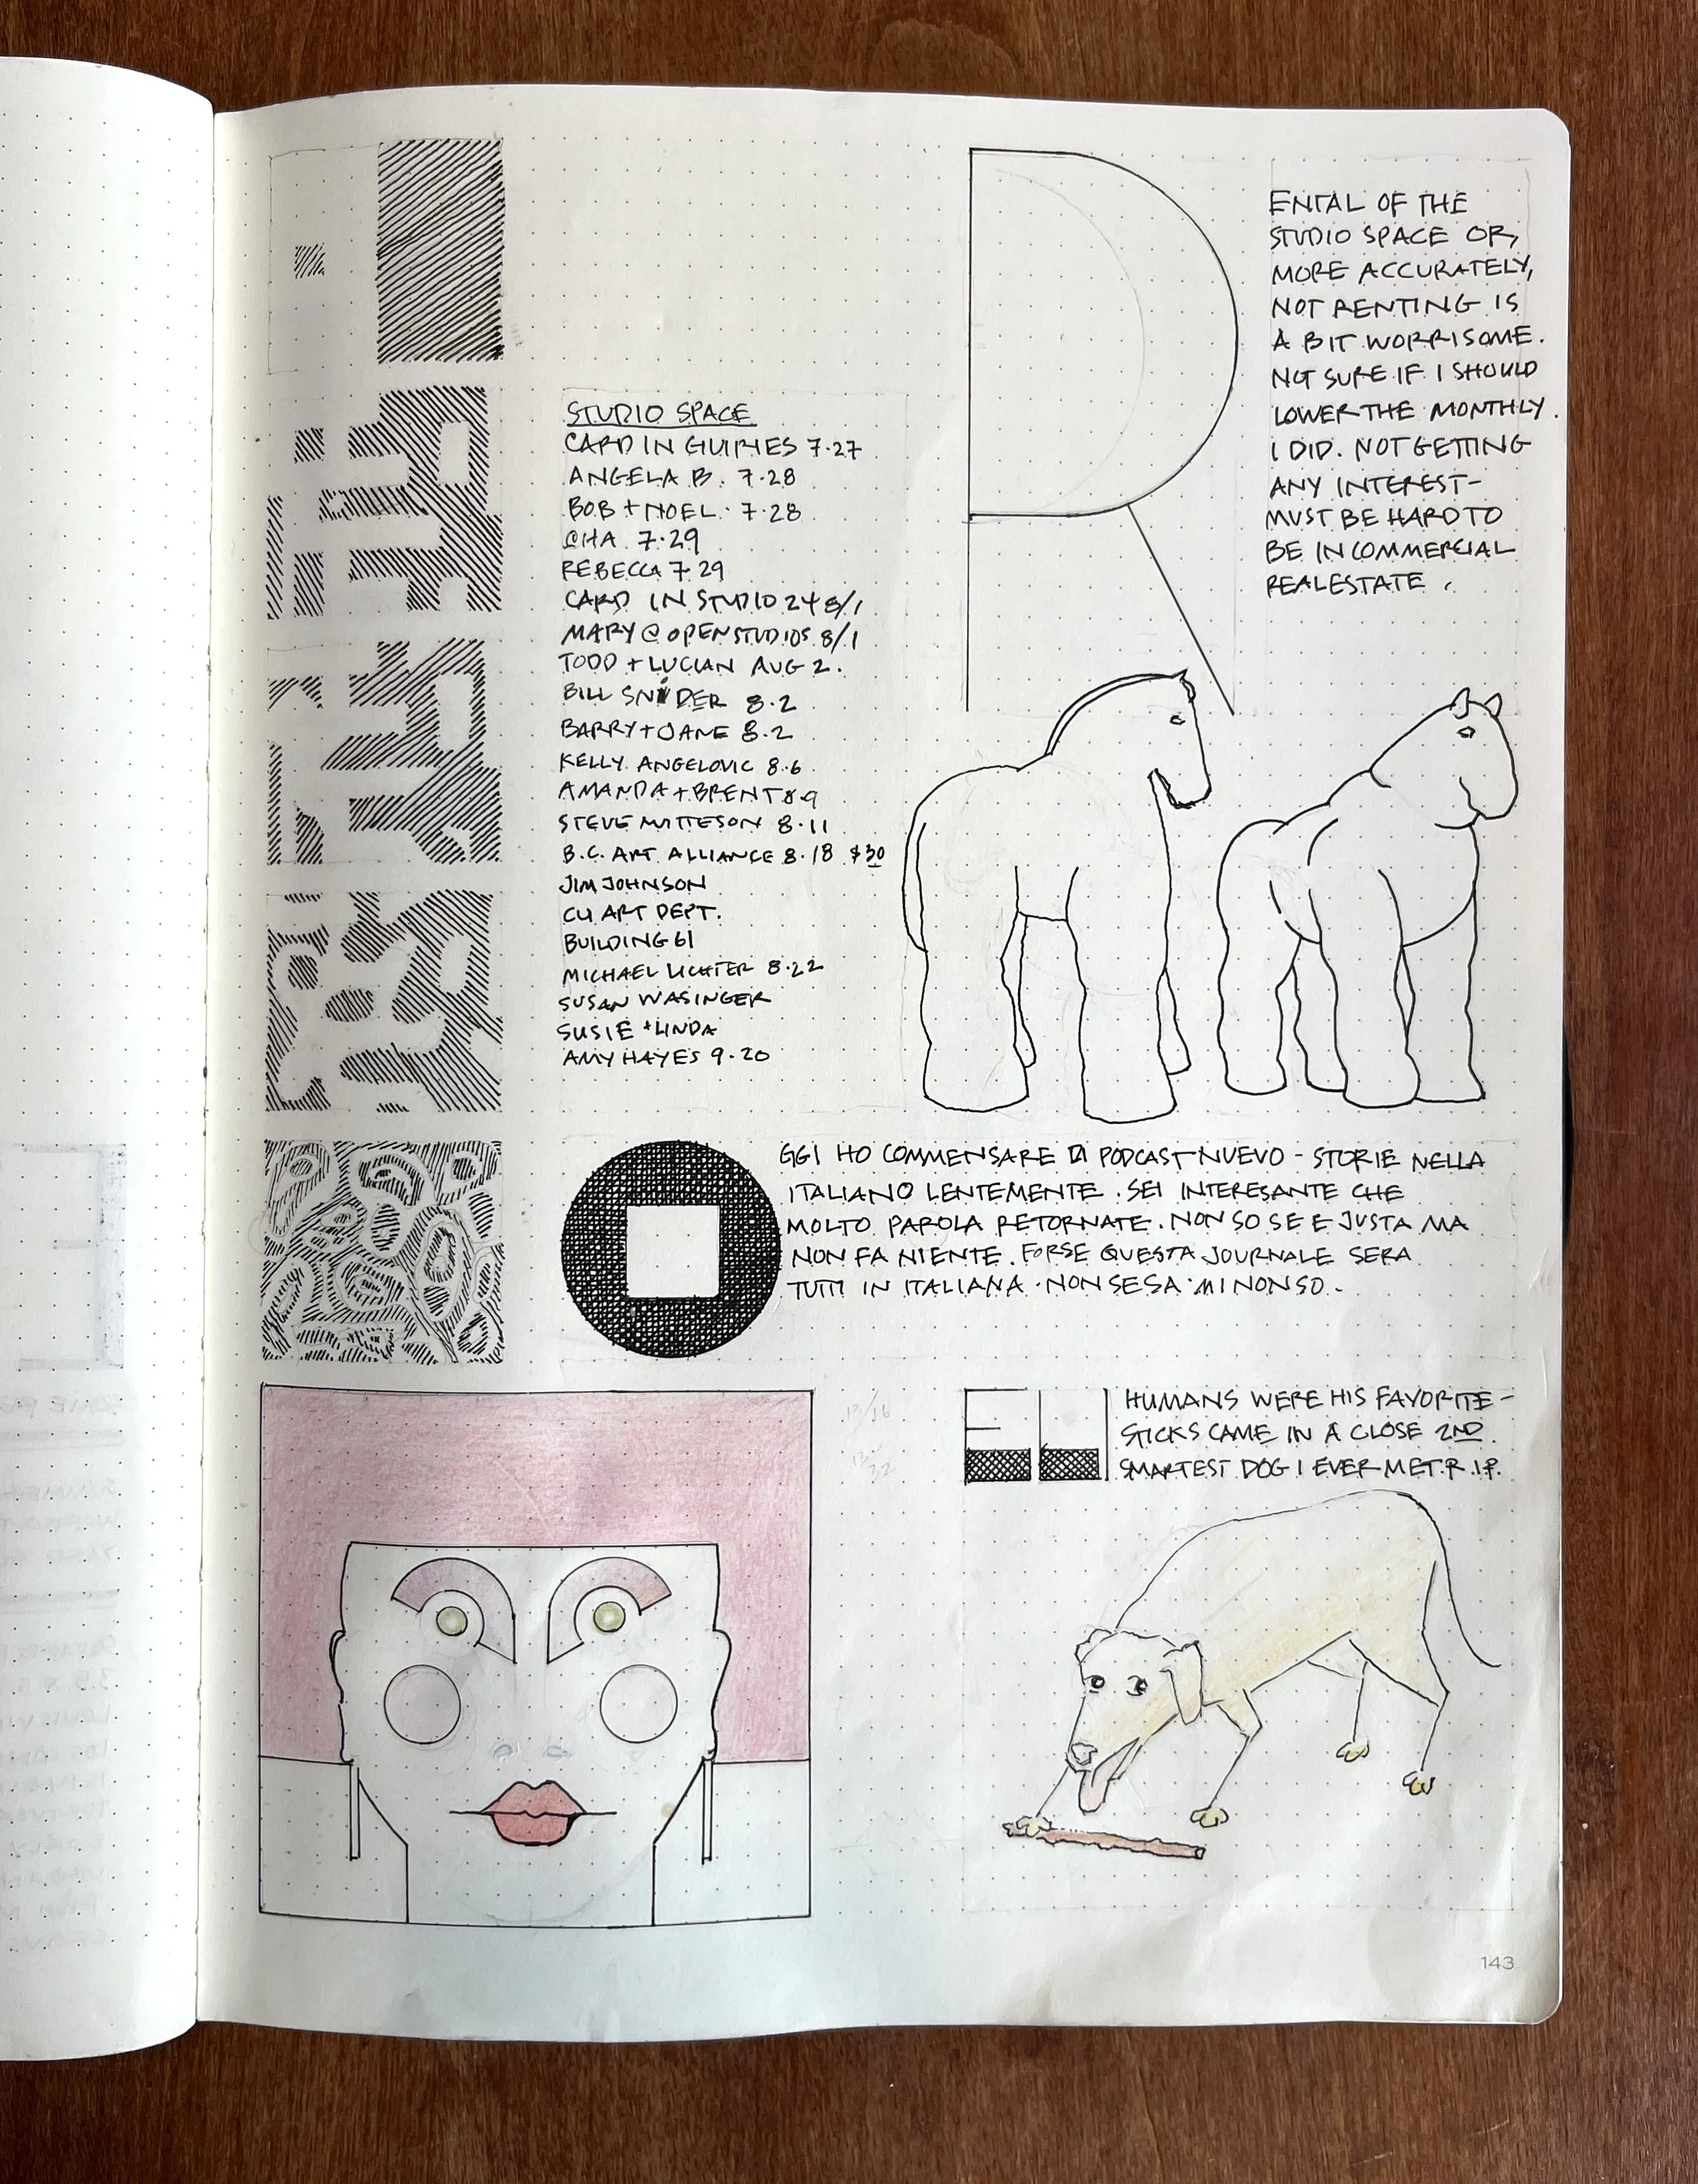 R
ENTAL OF THE
STUDIO SPACE OR,
MORE ACCURATELY,
NOT RENTING IS
A BIT WORRISOME.
NOT SURE IF I SHOULD
LOWER THE MONTHLY.
I DID. NOT GETTING
ANY INTEREST-
MUST BE HARD TO
BE IN COMMERCIAL
REALESTATE.
STUDIO SPACE
CARD IN GUIRIES 7·27
ANGELA B. 7·28
BOB + NOEL · 7·28
@HA 7·29
REBECCA 7·29
CARD IN STUDIO 24 8/1
MARY @ OPENSTUDIOS 8/1
TODD + LUCIAN AUG 2.
BILL SNIDER 8·2
BARRY + JANE 8·2
KELLY ANGELOVIC 8·6
AMANDA + BRENT 8·9
STEVE MATTESON 8·11
B.C. ART ALLIANCE 8·18 $30
JIM JOHNSON
CU ART DEPT.
BUILDING 61
MICHAEL LICHTER 8·22
SUSAN WASINGER
SUSIE + LINDA
AMY HAYES 9·20
O
GGI HO COMMENSARE DI PODCAST NUEVO - STORIE NELLA
ITALIANO LENTEMENTE. SEI INTERESANTE CHE
MOLTO PAROLA RETORNATE. NON SO SE E JUSTA MA
NON FA NIENTE. FORSE QUESTA JOURNALE SERA
TUTTI IN ITALIANA · NON SE SA · MI NON SO.
ELI
HUMANS WERE HIS FAVORITE-
STICKS CAME IN A CLOSE 2ND.
SMARTEST DOG I EVER MET. R.I.P.
13/16
143